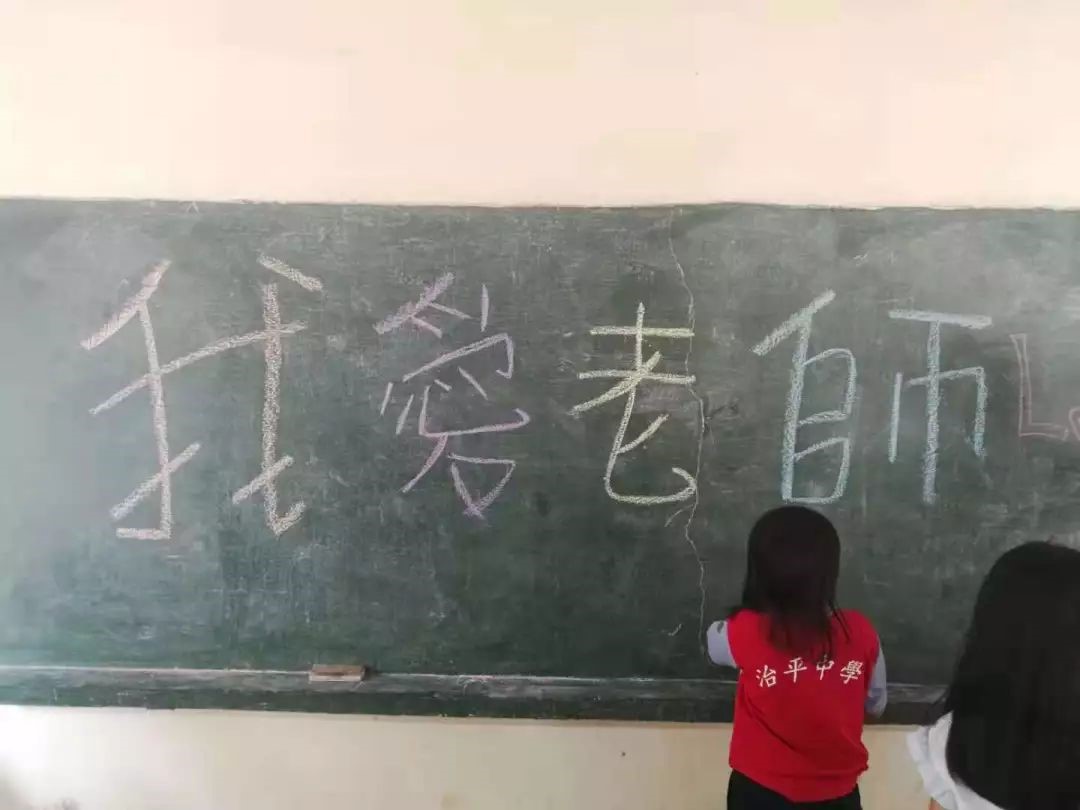 我愛老師
治平中學